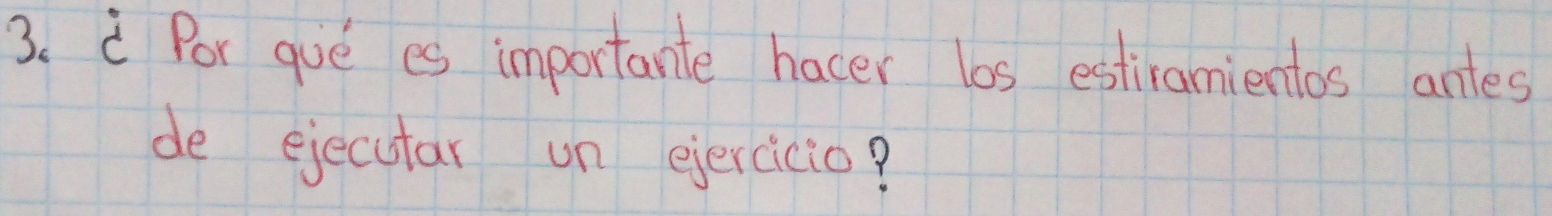 3. ¿ Por qué es importante hacer los estiramientos antes
de ejecutar un ejercicio?